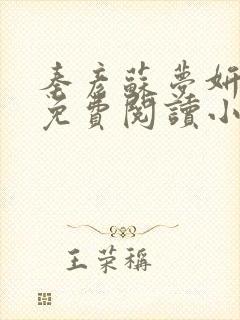 秦彥蘇夢妍
免費閱讀小
王荣稱